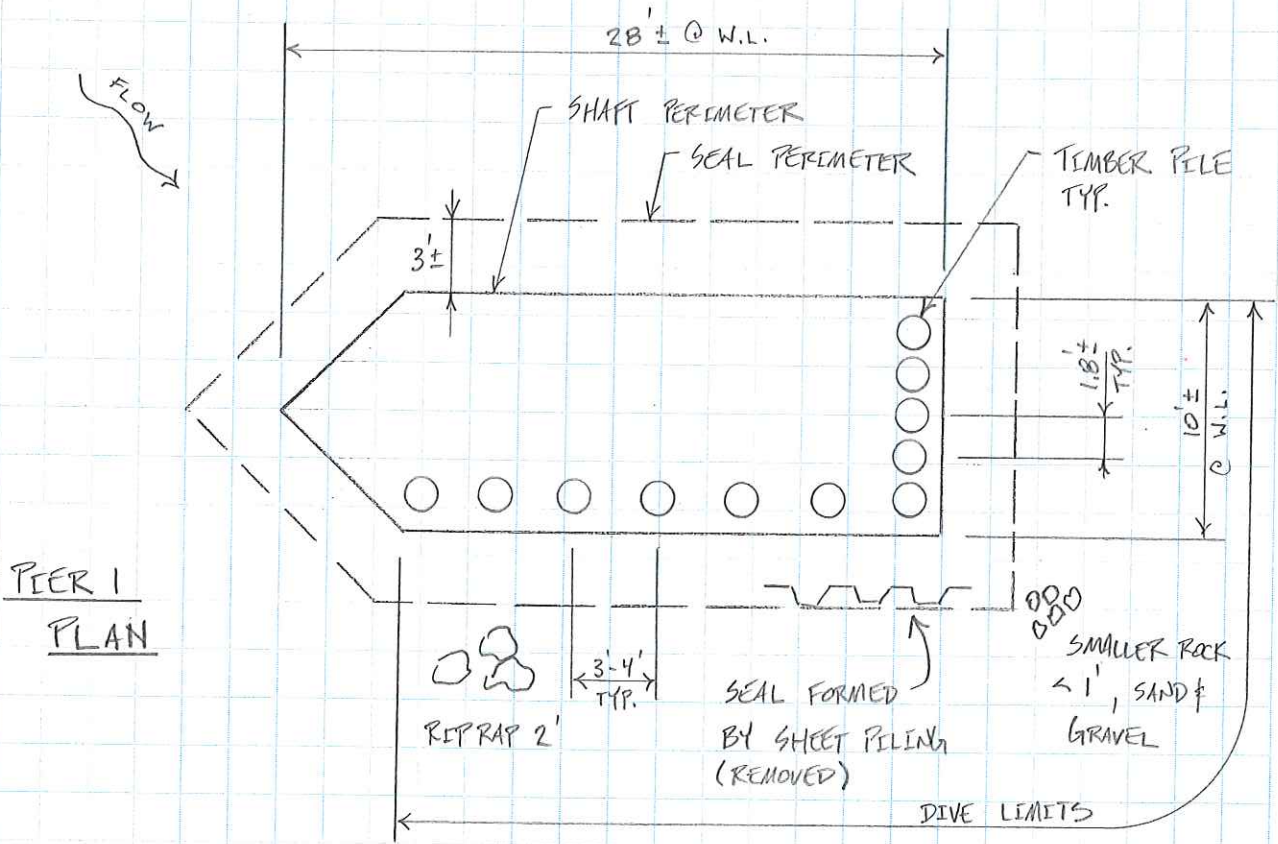 28'± @ W.L.
FLOW
SHAFT PERIMETER
SEAL PERIMETER
TIMBER PILE
TYP.
3'±
1.8'±
TYP.
10'±
@ W.L.
PIER 1
PLAN
3'-4'
TYP.
RIPRAP 2'
SEAL FORMED
BY SHEET PILING
(REMOVED)
SMALLER ROCK
< 1', SAND &
GRAVEL
DIVE LIMITS